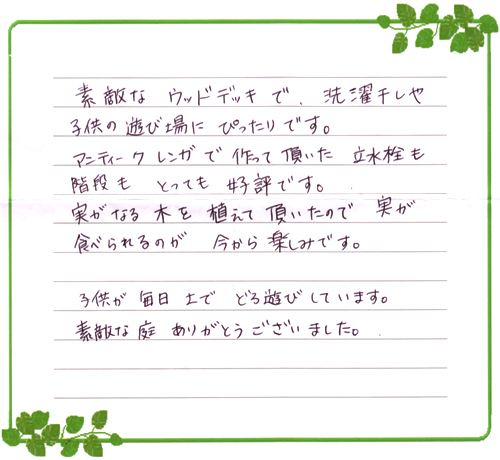 素敵な ウッドデッキで、洗濯干しや
子供の遊び場に ぴったりです。
アンティークレンガで 作って頂いた 立水栓も
階段も とっても 好評です。
実がなる 木を 植えて 頂いたので 実が
食べられるのが 今から楽しみです。
子供が 毎日 土で どろ遊びしています。
素敵な庭 ありがとうございました。